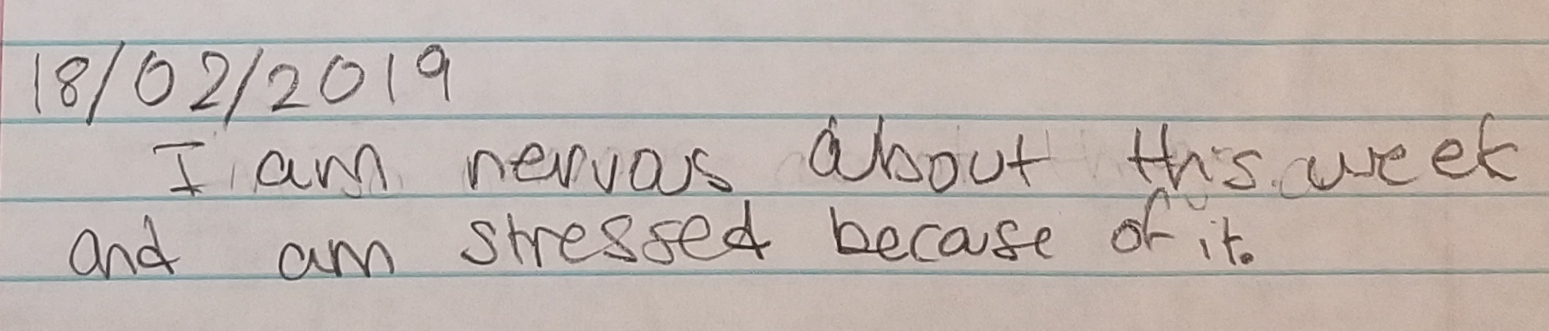 18/02/2019
I am nervas about this week
and am stressed becase of it.